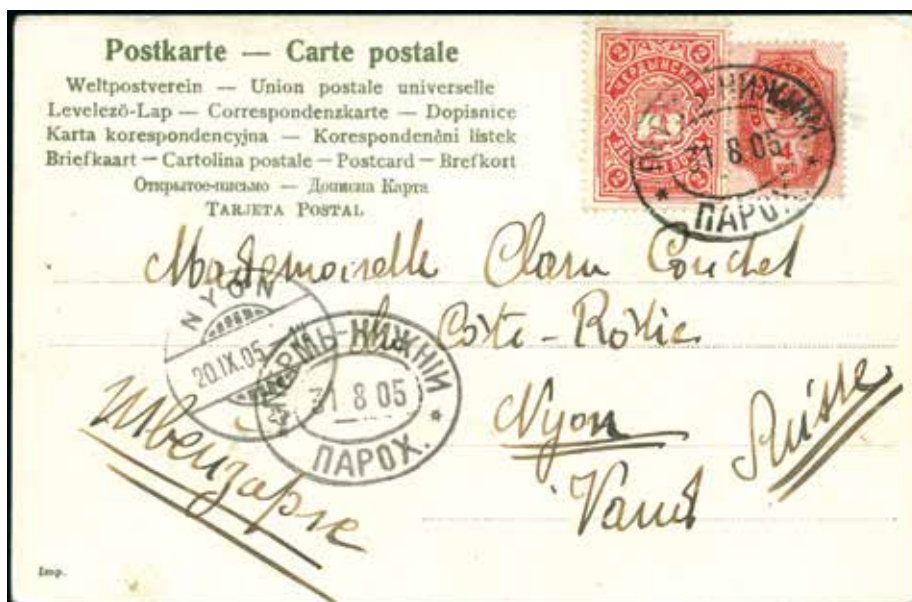 Postkarte — Carte postale
Weltpostverein — Union postale universelle
Levelező-Lap — Correspondenzkarte — Dopisnice
Karta korespondencyjna — Korespondenční listek
Briefkaart — Cartolina postale — Postcard — Brefkort
Открытое-письмо — Дописна Карта
TARJETA POSTAL
2 2
ЧЕРДЫНСКАЯ
2 2
4
НИЖНИЙ
31 8 05
ПАРОХ.
Mademoiselle Clara Couchet
La Côte-Rôtie
NYON
20.IX.05
ПЕРМЬ-НИЖНІЙ
31 8 05
ПАРОХ.
Nyon
Suisse
Vaud
Imp.